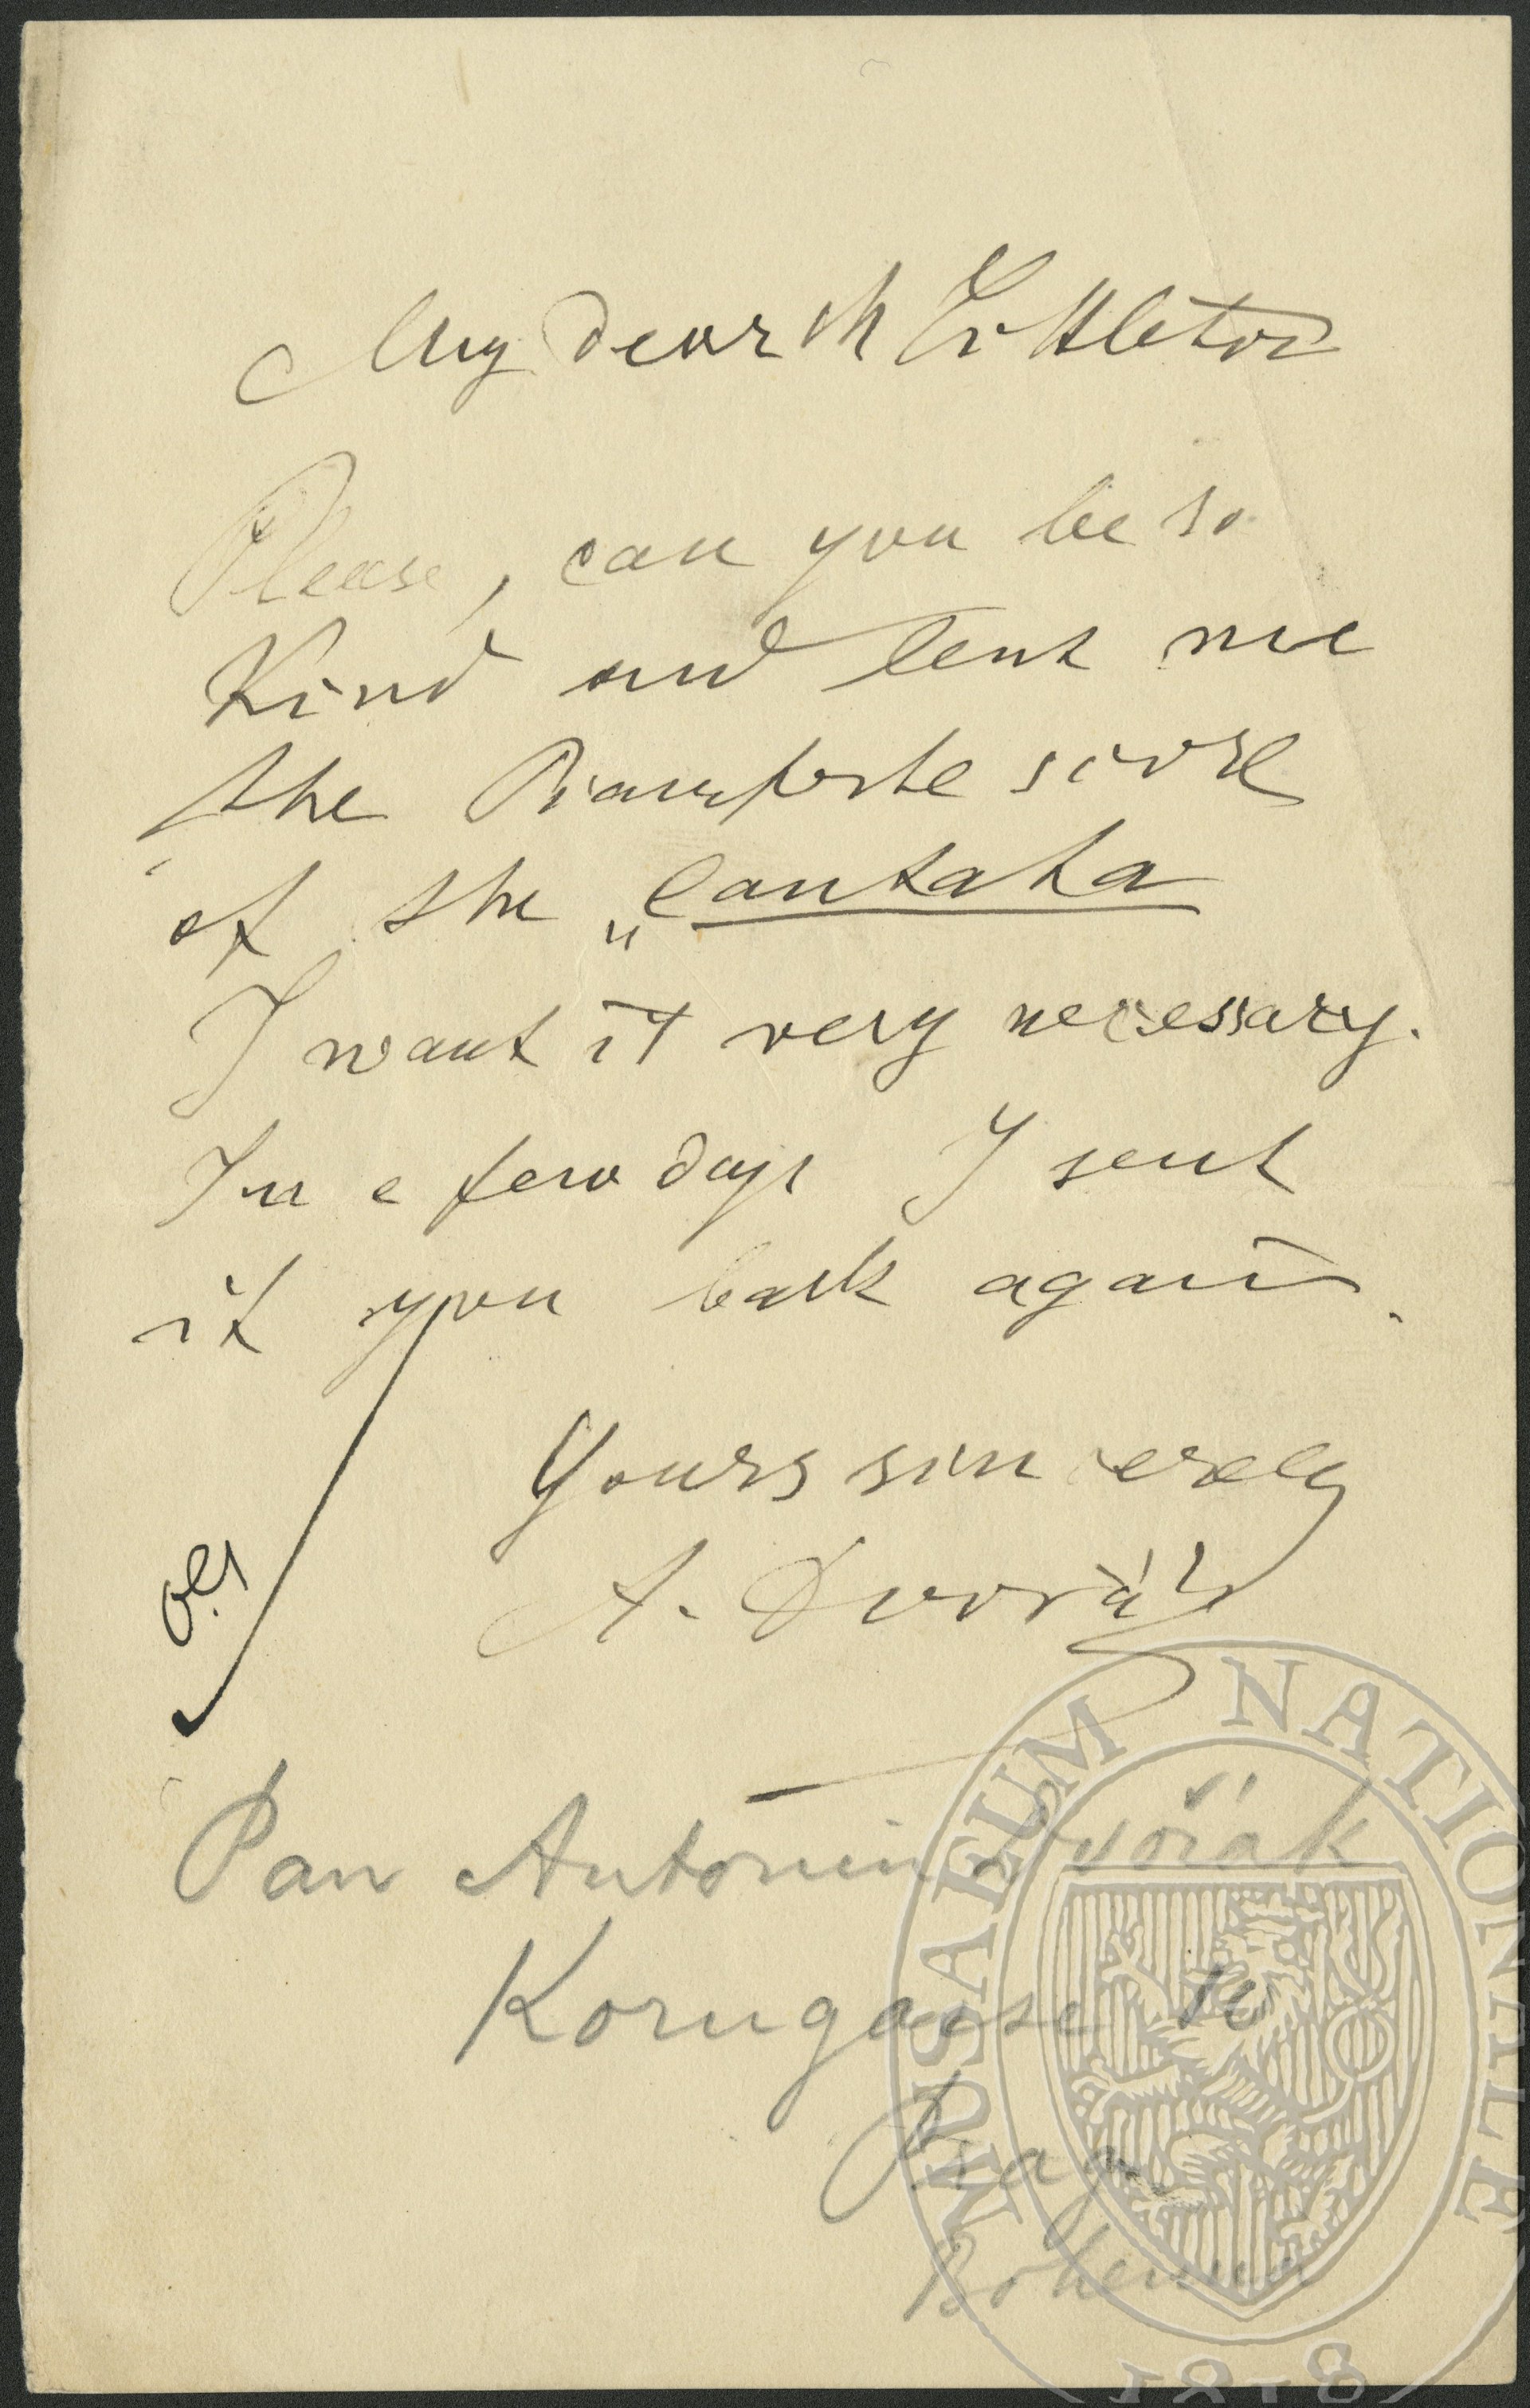 My dear M Littleton
Please, can you be so
Kind and lent me
the Pianoforte score
of the „Cantata
I want it very necessary.
In a few days I sent
it you back again.
Yours sincerely
A. Dvořák
Pan Antonin Dvořák
Korngasse 10
Prag
Bohemia
MUSAEUM NATIONALE
1818